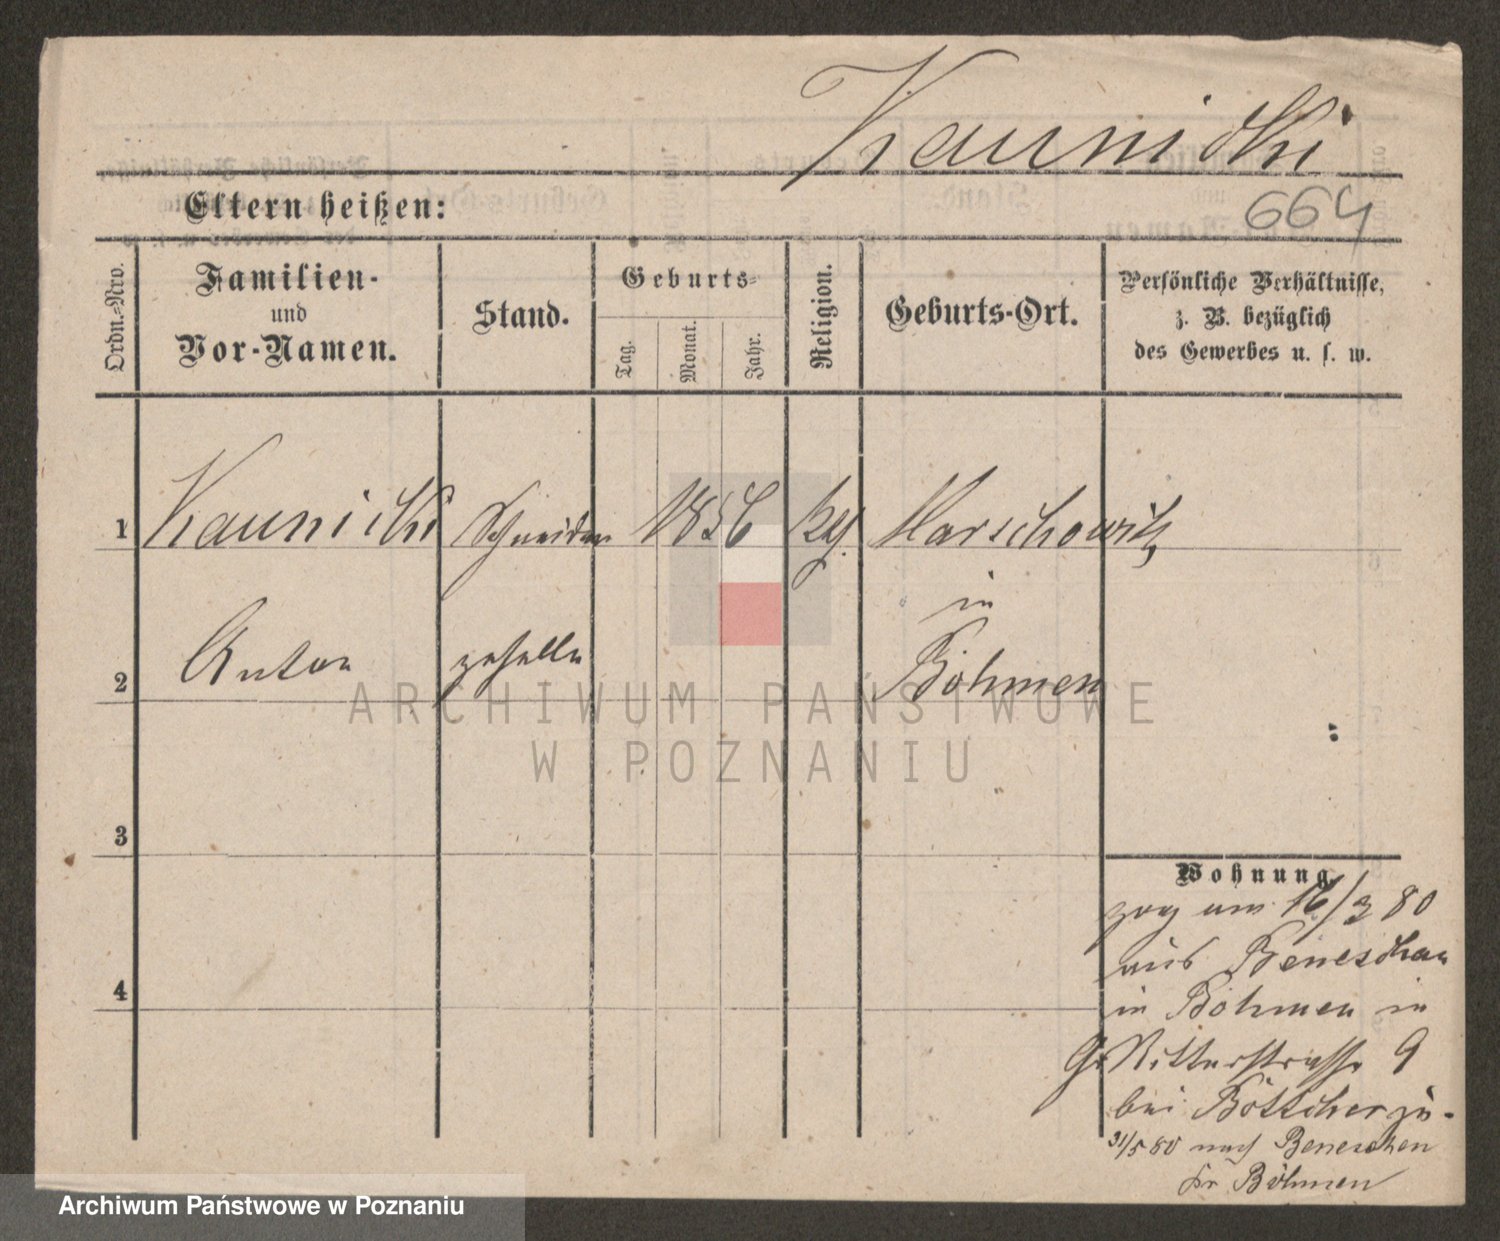 Kaunicki
Elternheißen:
664
Ordn.-Nro.
Familien-
und
Vor-Namen.
Stand.
Geburts-
Tag.
Monat.
Jahr.
Religion.
Geburts-Ort.
Persönliche Verhältnisse,
z. B. bezüglich
des Gewerbes u. s. w.
1 Kaunicki Schneider 1856 Marschowitz
in
2 Anton geselle Böhmen
ARCHIWUM PAŃSTWOWE
W POZNANIU
3
Wohnung.
zog am 16/3 80
aus Beneschau
4
in Böhmen in
Gr Ritterstrasse 9
bei Böttcher zu-
31/5 80 nach Beneschen
Böhmen
Archiwum Państwowe w Poznaniu